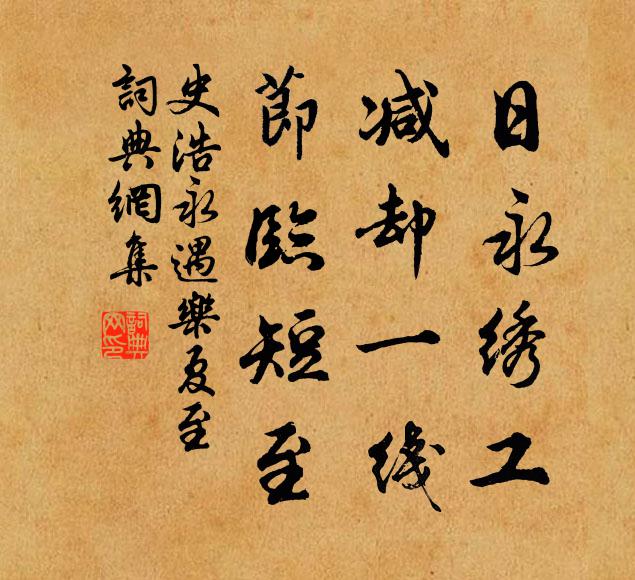 日永绣工
减却一线
節臨短至
史浩永遇樂夏至
詞典網集
詞典網印